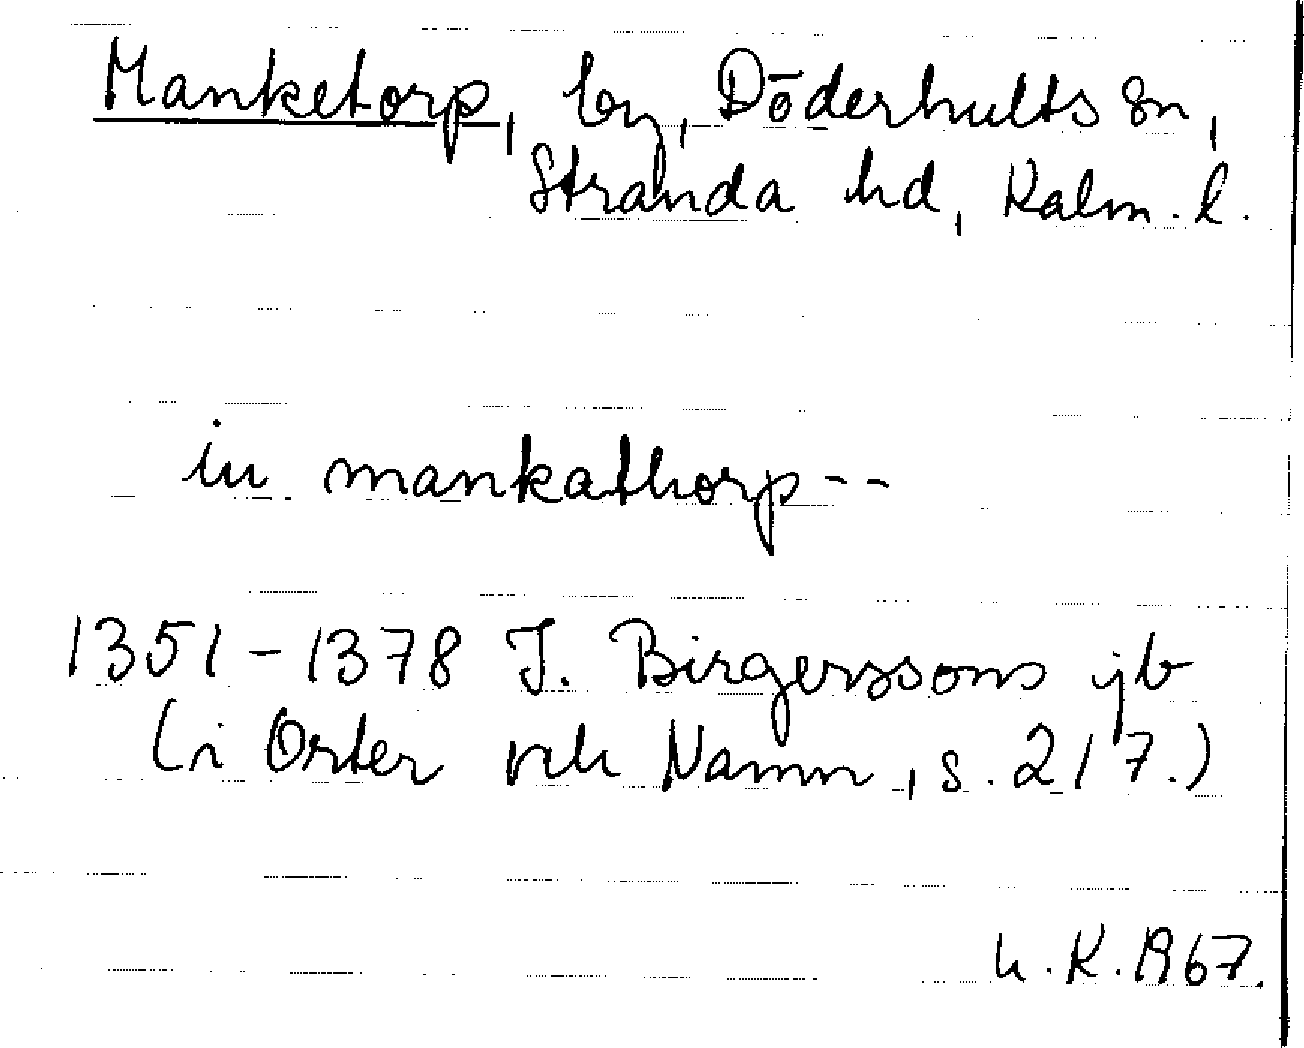 Manketorp, by, Döderhults sn,
Stranda hd, Kalm. l.
in mankathorp--
1351-1378 J. Birgerssons jb
(i Orter och Namn, s. 217.)
h. K. 1967.